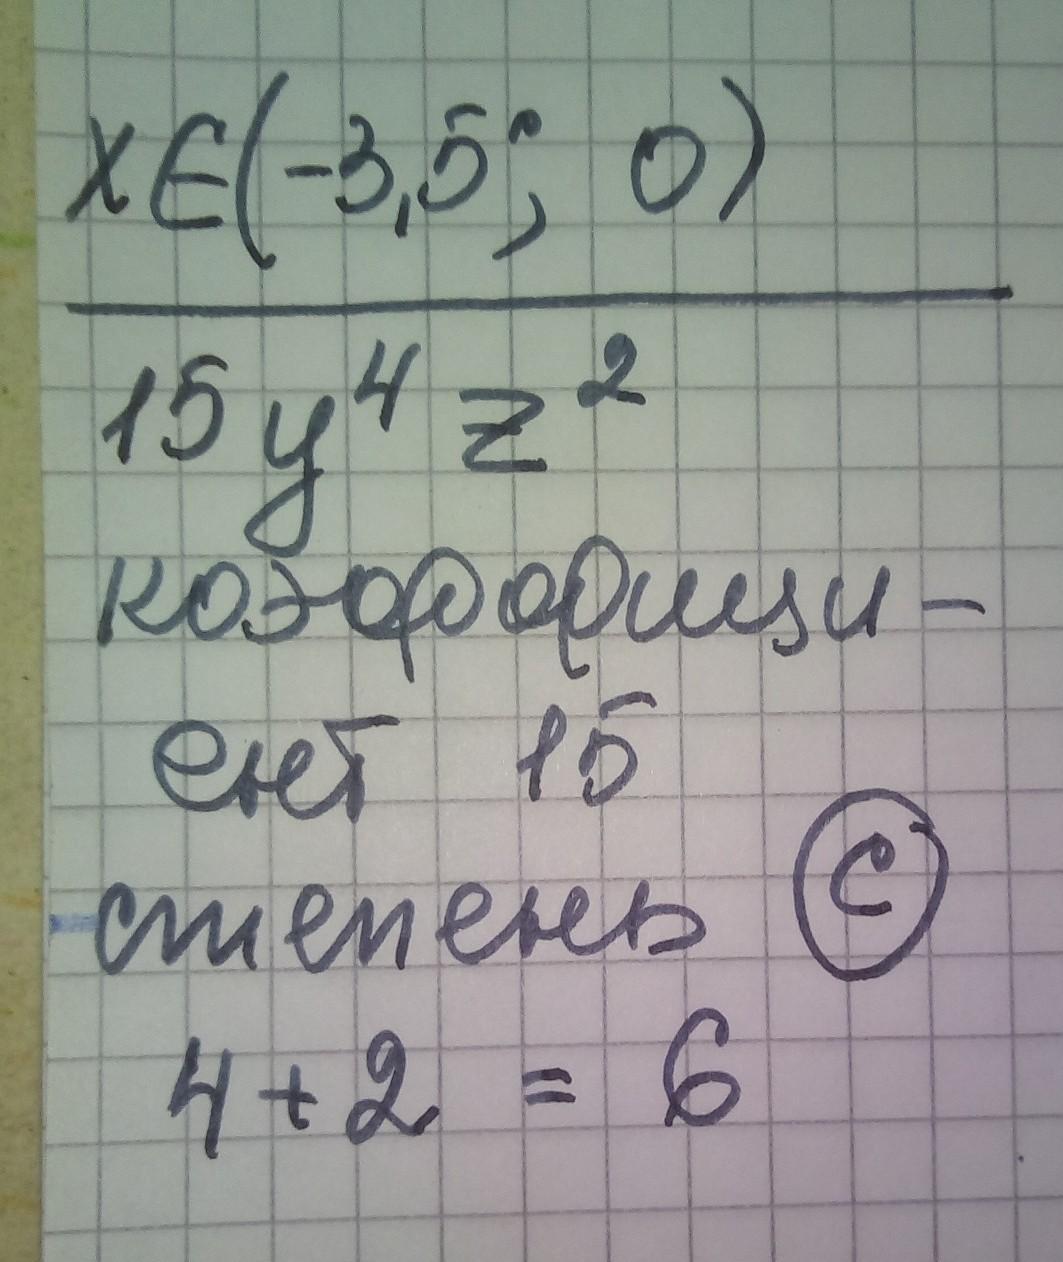 x∈(-3,5; 0)
15y⁴z²
коэффици-
ент 15
степень С
4+2 = 6